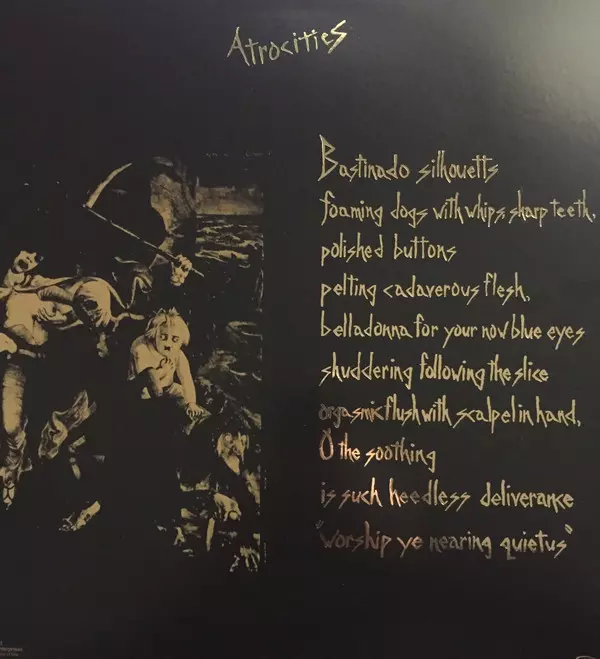 Atrocities
Bastinado silhouetts
foaming dogs with whips, sharp teeth,
polished buttons
pelting cadaverous flesh,
belladonna for your now blue eyes
shuddering following the slice
orgasmic flush with scalpel in hand,
O the soothing
is such heedless deliverance
"worship ye nearing quietus"